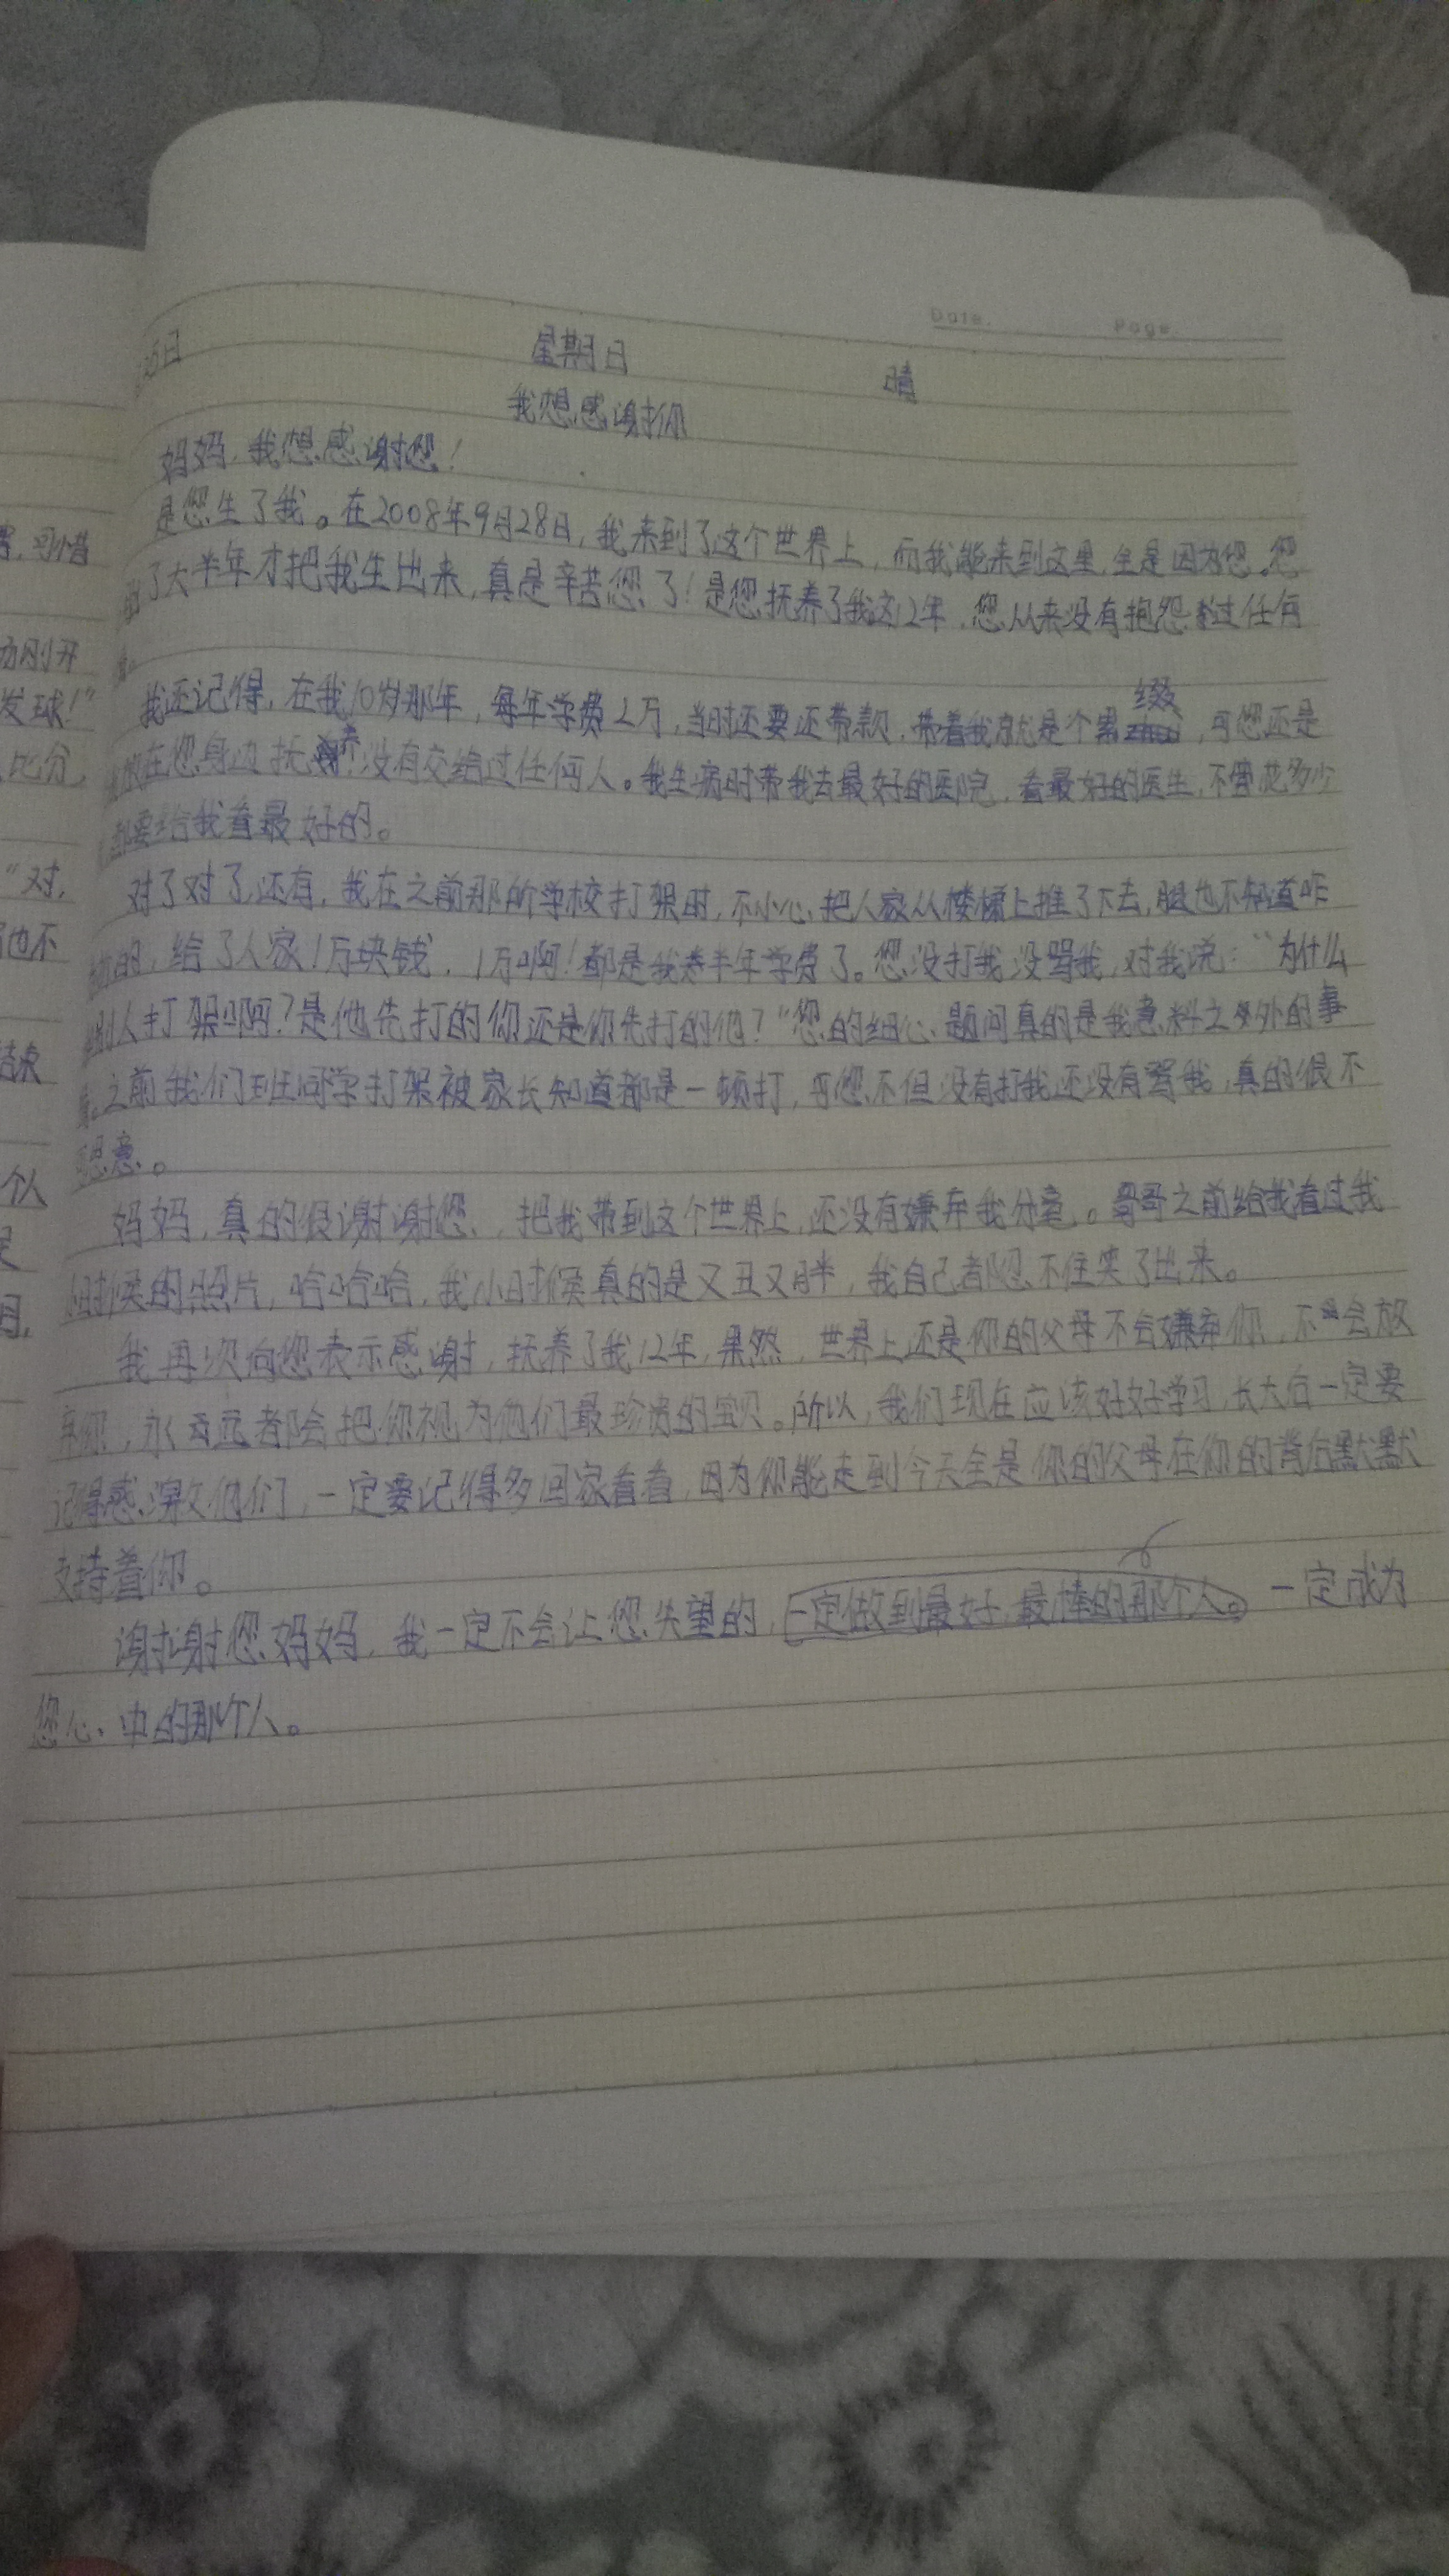 Date.
Page.
日 星期日 晴
我想感谢你
妈妈,我想感谢您!
是您生了我。在2008年9月28日,我来到了这个世界上,而我能来到这里,全是因为您。您
了大半年才把我生出来,真是辛苦您了!是您抚养了我这12年,您从来没有抱怨过任何
我还记得,在我10岁那年,每年学费2万,当时还要还带款,带着我就是个累缀,可您还是
在您身边抚养,没有交给过任何人。我生病时带我去最好的医院,看最好的医生,不管花多少
都要给我看最好的。
对了对了,还有,我在之前那所学校打架时,不小心把人家从楼梯上推了下去,腿也不知道咋
的,给了人家1万块钱,1万啊!都是我半年学费了。您没打我没骂我,对我说:“为什么
别人打架啊?是他先打的你还是你先打的他?”您的细心题问真的是我意料之外的事
之前我们班同学打架被家长知道都是一顿打,可您不但没有打我还没有骂我,真的很不
思意。
妈妈,真的很谢谢您,把我带到这个世界上,还没有嫌弃我分毫。哥哥之前给我看过我
小时候的照片,哈哈哈,我小时候真的是又丑又胖,我自己都忍不住笑了出来。
我再次向您表示感谢,抚养了我12年,果然,世界上还是你的父母不会嫌弃你,不会放
弃你,永远都会把你视为他们最珍贵的宝贝。所以,我们现在应该好好学习,长大后一定要
记得感激他们,一定要记得多回家看看,因为你能走到今天全是你的父母在你的背后默默
支持着你。
谢谢您妈妈,我一定不会让您失望的,一定做到最好,最棒的那个人。一定成为
您心中的那个人。
可惜
刚开
发球!”
比分,
“对,
他也不
结束
个人